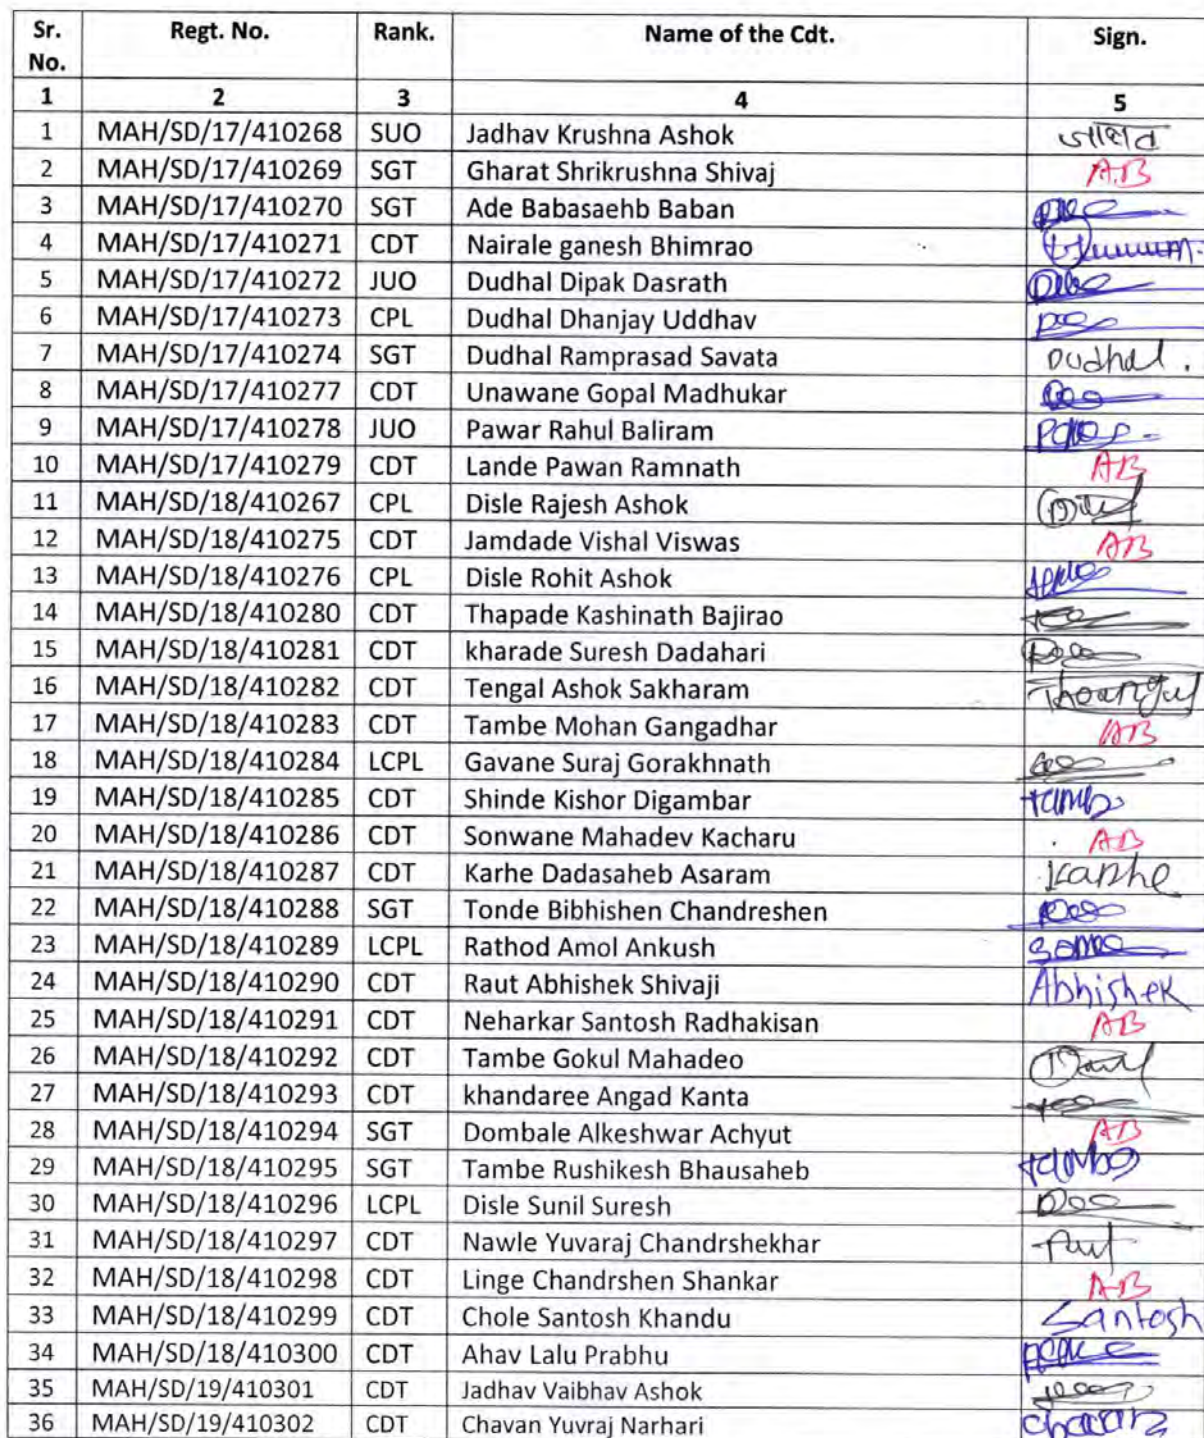 Sr. No. Regt. No. Rank. Name of the Cdt. Sign.
1 2 3 4 5
1 MAH/SD/17/410268 SUO Jadhav Krushna Ashok जाधव
2 MAH/SD/17/410269 SGT Gharat Shrikrushna Shivaj A.B
3 MAH/SD/17/410270 SGT Ade Babasaehb Baban
4 MAH/SD/17/410271 CDT Nairale ganesh Bhimrao
5 MAH/SD/17/410272 JUO Dudhal Dipak Dasrath
6 MAH/SD/17/410273 CPL Dudhal Dhanjay Uddhav
7 MAH/SD/17/410274 SGT Dudhal Ramprasad Savata Dudhal.
8 MAH/SD/17/410277 CDT Unawane Gopal Madhukar
9 MAH/SD/17/410278 JUO Pawar Rahul Baliram
10 MAH/SD/17/410279 CDT Lande Pawan Ramnath AB
11 MAH/SD/18/410267 CPL Disle Rajesh Ashok
12 MAH/SD/18/410275 CDT Jamdade Vishal Viswas AB
13 MAH/SD/18/410276 CPL Disle Rohit Ashok
14 MAH/SD/18/410280 CDT Thapade Kashinath Bajirao
15 MAH/SD/18/410281 CDT kharade Suresh Dadahari
16 MAH/SD/18/410282 CDT Tengal Ashok Sakharam
17 MAH/SD/18/410283 CDT Tambe Mohan Gangadhar AB
18 MAH/SD/18/410284 LCPL Gavane Suraj Gorakhnath
19 MAH/SD/18/410285 CDT Shinde Kishor Digambar
20 MAH/SD/18/410286 CDT Sonwane Mahadev Kacharu AB
21 MAH/SD/18/410287 CDT Karhe Dadasaheb Asaram Karhe
22 MAH/SD/18/410288 SGT Tonde Bibhishen Chandreshen
23 MAH/SD/18/410289 LCPL Rathod Amol Ankush
24 MAH/SD/18/410290 CDT Raut Abhishek Shivaji Abhishek
25 MAH/SD/18/410291 CDT Neharkar Santosh Radhakisan AB
26 MAH/SD/18/410292 CDT Tambe Gokul Mahadeo
27 MAH/SD/18/410293 CDT khandaree Angad Kanta
28 MAH/SD/18/410294 SGT Dombale Alkeshwar Achyut AB
29 MAH/SD/18/410295 SGT Tambe Rushikesh Bhausaheb
30 MAH/SD/18/410296 LCPL Disle Sunil Suresh
31 MAH/SD/18/410297 CDT Nawle Yuvaraj Chandrshekhar
32 MAH/SD/18/410298 CDT Linge Chandrshen Shankar AB
33 MAH/SD/18/410299 CDT Chole Santosh Khandu Santosh
34 MAH/SD/18/410300 CDT Ahav Lalu Prabhu
35 MAH/SD/19/410301 CDT Jadhav Vaibhav Ashok
36 MAH/SD/19/410302 CDT Chavan Yuvraj Narhari